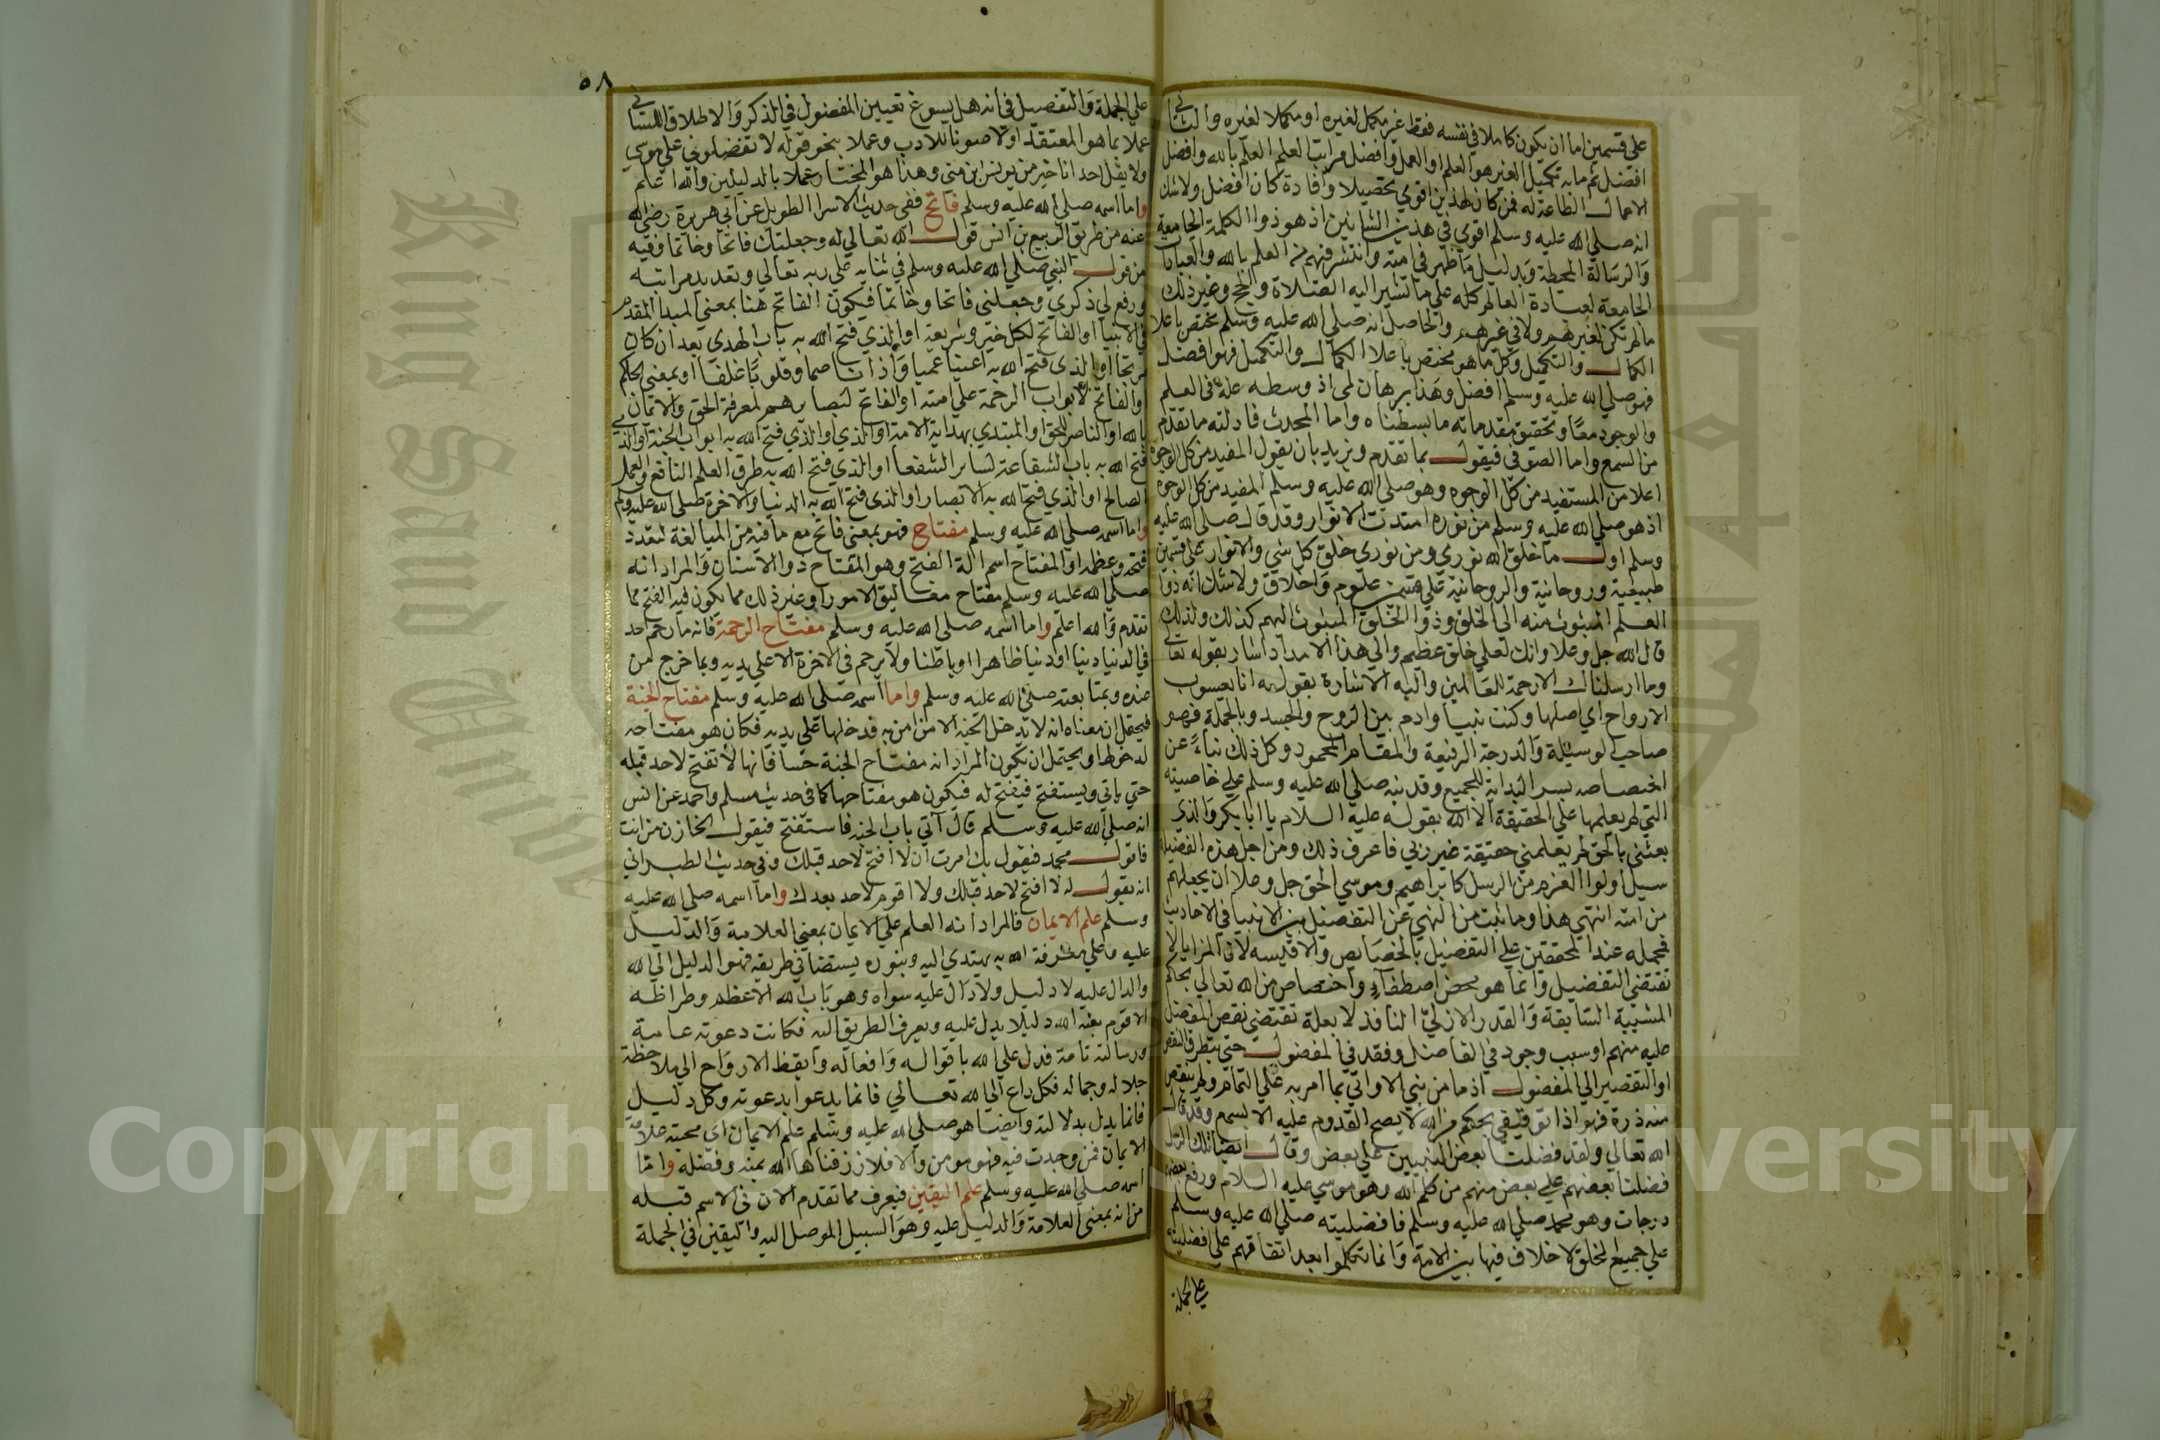 علي قسمين اما ان يكون كاملا في نفسه فقط غير مكمل لغيره او مكملا لغيره والثاني
افضل ثم ما به تكميل الغير هو العلم او العمل وافضل مراتب العلم العلم بالله وافضل
الاعمال الطاعة له فمن كان لهذين اقوي تحصيلا وافادة كان افضل ولا شك
انه صلي الله عليه وسلم اقوي في هذين الشانين اذ هو ذوا الكلمة الجامعة
والرسالة المحيطة وبدليل ما ظهر في امته وانتشر فيهم من العلم بالله والعبادات
الجامعة لعبادة العالم كله علي ما تشير اليه الصلاة والحج وغير ذلك
ما لم تكن لغيرهم ولا في غيرهم والحاصل انه صلي الله عليه وسلم مختص باعلا
الكمال والتكميل وكل ما هو مختص باعلا الكمال والتكميل فهو افضل
فهو صلي الله عليه وسلم افضل وهذا برهان لمي اذ وسطه علة في العلم
والوجود معا وتحقيق مقدماته ما بسطناه واما المحدث فادلته ما تقدم
من السمع واما الصوفي فيقول بما تقدم ويزيد بان يقول المفيد من كل الوجوه
اعلا من المستفيد من كل الوجوه وهو صلي الله عليه وسلم المفيد من كل الوجوه
اذ هو صلي الله عليه وسلم من نوره امتدت الانوار وقد قال صلي الله عليه
وسلم اول ما خلق الله نوري ومن نوري خلق كل شي والانوار علي قسمين
طبيعية وروحانية والروحانية علي قسمين علوم واخلاق ولا شك انه ذوا
العلم المبثوث منه الي الخلق وذوا الخلق المبثوث اليهم كذلك ولذلك
قال الله جل وعلا وانك لعلي خلق عظيم والي هذا الامداد اشار بقوله تعالي
وما ارسلناك الا رحمة للعالمين واليه الاشارة بقوله انا يعسوب
الارواح اي اصلها وكنت نبيا وادم بين الروح والجسد وبالجملة فهو
صاحب الوسيلة والدرجة الرفيعة والمقام المحمود وكل ذلك نباء عن
اختصاصه بسر البداية للجميع وقد نبه صلي الله عليه وسلم علي خاصيته
التي لم يعلمها علي الحقيقة الا الله بقوله عليه السلام يا ابا بكر والذي
بعثني بالحق لم يعلمني حقيقة غير ربي فاعرف ذلك ومن اجل هذه الفضيلة
سيل اولوا العزم من الرسل كابراهيم وموسي الحق جل وعلا ان يجعلهم
من امته انتهي هذا وما ثبت من النهي عن التفضيل بين الانبيا في الاحاديث
فمحمله عند المحققين علي التفضيل بالخصايص والاقيسه لان المزايا لا
تقتضي التفضيل وانما هو بمحض اصطفاء واختصاص من الله تعالي بحكم
المشيية السابقة والقدر الازلي النافذ لا بعلة تقتضي نقص المفضل
عليه منهم او سبب وجود في الفاضل وفقد في المفضول حتي يتطرق النقص
او التقصير الي المفضول اذ ما من نبي الا واتي بما امر به علي التمام ولم ينقص
منه ذرة فهو اذا توقيفي بحكم من الله لا يصح القدوم عليه الا بسمع وقد قال
الله تعالي ولقد فضلنا بعض النبيين علي بعض وقال ايضا تلك الرسل
فضلنا بعضهم علي بعض منهم من كلم الله وهو موسي عليه السلام ورفع بعضهم
درجات وهو محمد صلي الله عليه وسلم فافضليته صلي الله عليه وسلم
علي جميع الخلق لا خلاف فيها بين الامة وانما تكلموا بعد اتفاقهم علي افضليته
علي الجملة
٥٨
علي الجملة والتفصيل في انه هل يسوغ تعيين المفضول في الذكر والاطلاق اللساني
عملا بما هو المعتقد اولا صونا للادب وعملا بنحو قوله لا تفضلوني علي موسي
ولا يقل احد انا خير من يونس ابن متي وهذا هو المختار عملا بالدليلين والله اعلم
واما اسمه صلي الله عليه وسلم فاتح ففي حديث الاسرا الطويل عن ابي هريرة رضي الله
عنه من طريق الربيع بن انس قول الله تعالي له وجعلتك فاتحا وخاتما وفيه
من قول النبي صلي الله عليه وسلم في ثنايه علي ربه تعالي وتعديد مراتبه
ورفع لي ذكري وجعلني فاتحا وخاتما فيكون الفاتح هنا بمعني المبدا المقدم
في الانبيا او الفاتح لكل خير وشريعة او الذي فتح الله به باب الهدي بعد ان كان
مرتجا او الذي فتح الله به اعينا عميا واذانا صما وقلوبا غلفا او بمعني الحاكم
او الفاتح لابواب الرحمة علي امته او الفاتح لبصايرهم لمعرفة الحق والايمان
بالله او الناصر للحق او المبتدي بهداية الامة او الذي فتح الله به ابواب الجنة او الذي
فتح الله به باب الشفاعة لساير الشفعا او الذي فتح الله به طرق العلم النافع والعمل
الصالح او الذي فتح الله به الابصار او الذي فتح الله به الدنيا والاخرة صلي الله عليه وسلم
واما اسمه صلي الله عليه وسلم مفتاح فهو بمعني فاتح مع ما فيه من المبالغة لتعدد
فتحه وعظمه او المفتاح اسم الة الفتح وهو المفتاح ذو الاسنان والمراد انه
صلي الله عليه وسلم مفتاح مغاليق الامور او غير ذلك مما يكون فيه الفتح مما
تقدم والله اعلم واما اسمه صلي الله عليه وسلم مفتاح الرحمة فانه ما رحم احد
في الدنيا دينا او دنيا ظاهرا او باطنا ولا يرحم في الاخرة الا علي يديه وبما خرج من
عنده وبمتابعته صلي الله عليه وسلم واما اسمه صلي الله عليه وسلم مفتاح الجنة
فيحتمل ان معناه انه لا يدخل الجنة الا من امن به فدخلها علي يديه فكان هو مفتاحه
لدخولها ويحتمل ان يكون المراد انه مفتاح الجنة حسا فانها لا تفتح لاحد قبله
حتي ياتي ويستفتح فيفتح له فيكون هو مفتاحها كما في حديث مسلم واحمد عن انس
انه صلي الله عليه وسلم قال آتي باب الجنة فاستفتح فيقول الخازن من انت
فاقول محمد فيقول بك امرت ان لا افتح لاحد قبلك وفي حديث الطبراني
انه يقول له لا افتح لاحد قبلك ولا اقوم لاحد بعدك واما اسمه صلي الله عليه
وسلم علم الايمان فالمراد انه العلم علي الايمان بمعني العلامة والدليل
عليه وعلي معرفة الله به يهتدي اليه وبنوره يستضا في طريقه فهو الدليل الي الله
والدال عليه لا دليل ولا دال عليه سواه وهو باب الله الاعظم وطراطه
الاقوم بعثه الله دليلا يدل عليه ويعرف الطريق اليه فكانت دعوته عامة
ورسالته تامة فدل علي الله باقواله وافعاله وايقظ الارواح الي ملاحظة
جلاله وجماله فكل داع الي الله تعالي فانما يدعوا بدعوته وكل دليل
فانما يدل بدلالته وايضا هو صلي الله عليه وسلم علم الايمان اي محبته علامة
الايمان فمن وجدت فيه فهو مومن والا فلا رزقناها الله بمنه وفضله واما
اسمه صلي الله عليه وسلم علم اليقين فيعرف مما تقدم الان في الاسم قبله
من انه بمعني العلامة والدليل عليه وهو السبيل الموصل اليه واليقين في الجملة
Copyright © King Saud University